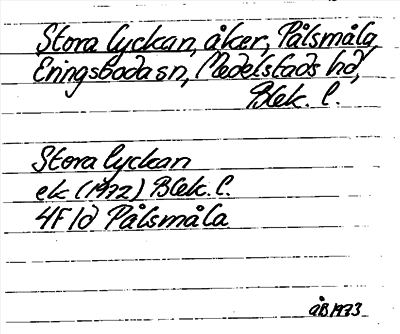 Stora lyckan, åker, Pålsmåla,
Eringsboda sn, Medelstads hd,
Blek. l.
Stora lyckan
ek (1972) Blek. l.
4F1d Pålsmåla
ÅB 1973